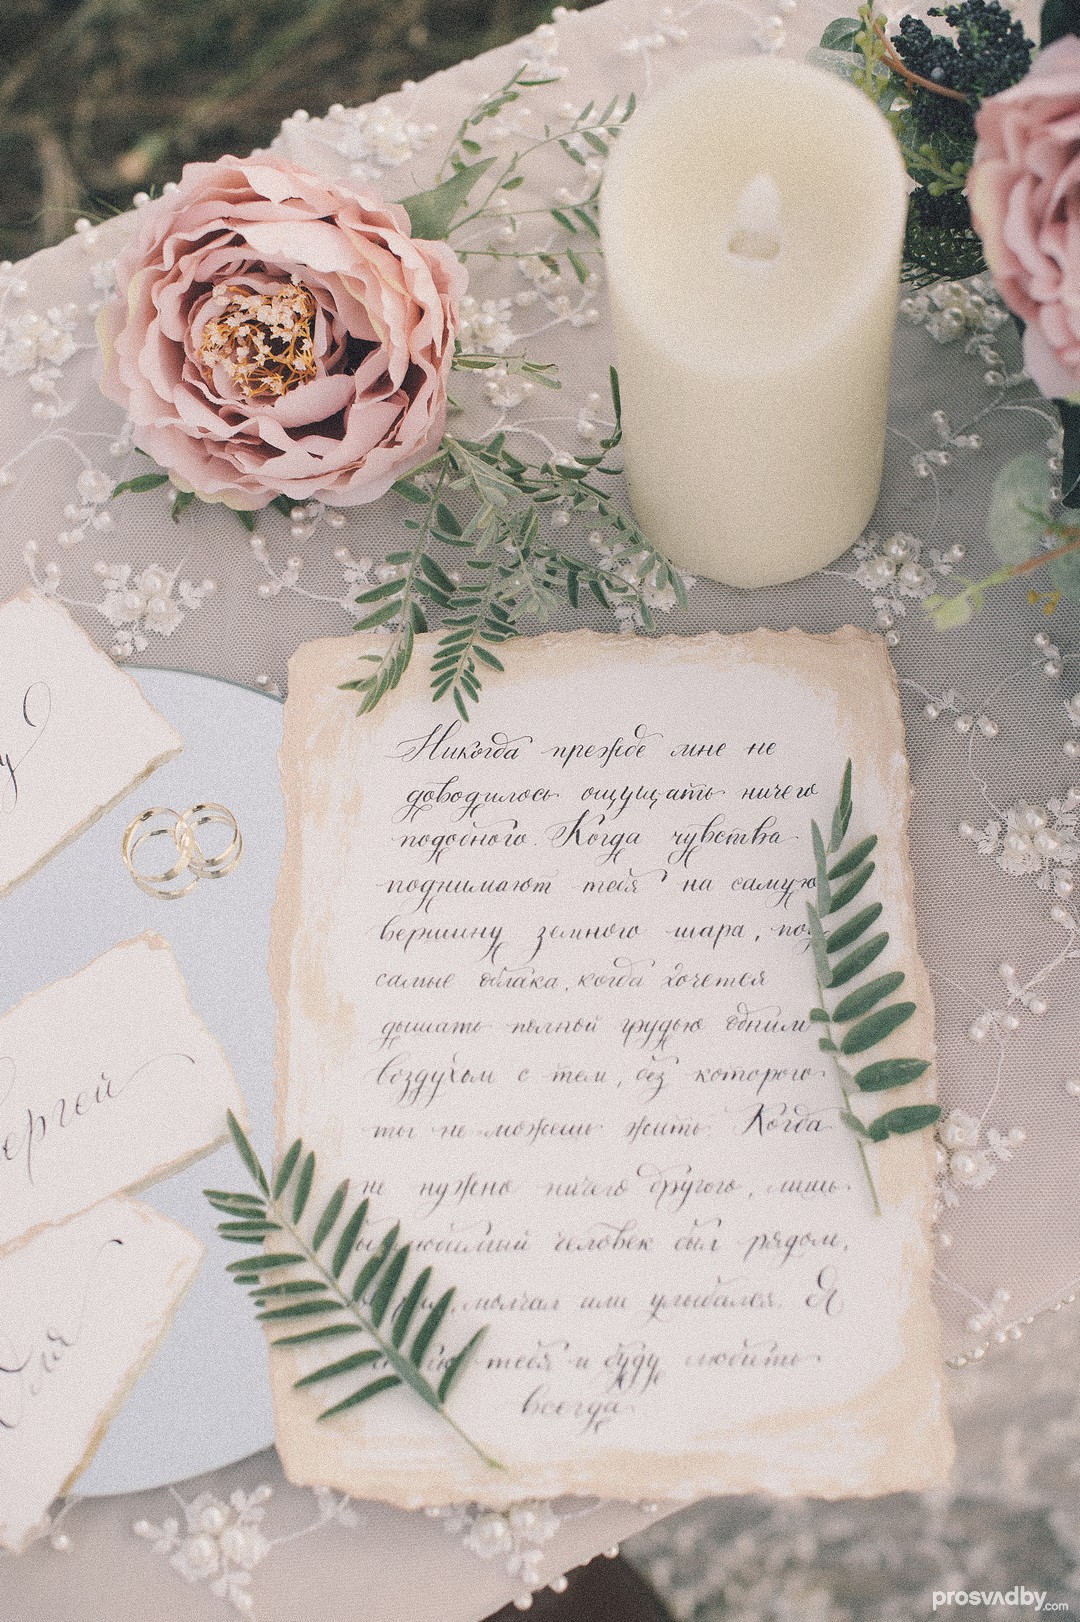 Никогда прежде мне не
доводилось ощущать ничего
подобного. Когда чувства
поднимают тебя на самую
вершину земного шара, под
самые облака, когда хочется
дышать полной грудью одним
воздухом с тем, без которого
ты не можешь жить. Когда
не нужно ничего другого, лишь
любимый человек был рядом,
молчал или улыбался. Я
тебя и буду любить
всегда.
ергей
prosvadby.com